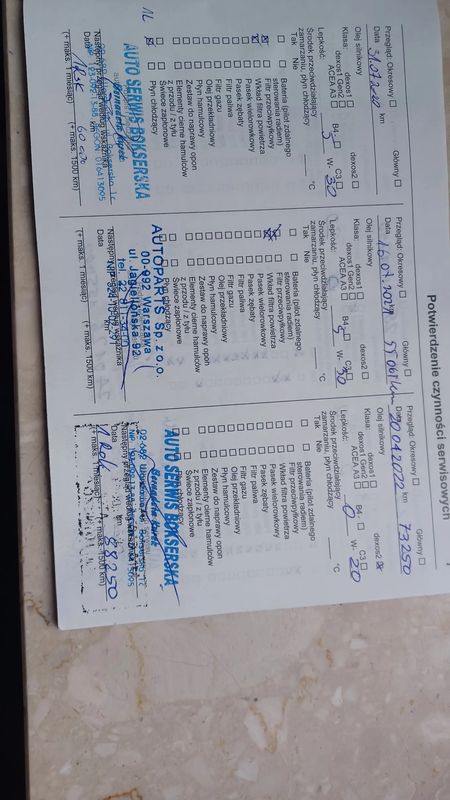 Potwierdzenie czynności serwisowych
Przegląd: Okresowy ☐ Główny ☐
Data 31.07 km
Olej silnikowy
Klasa: dexos1 ☐ dexos2 ☐
dexos1 Gen2 ☐
ACEA A3 ☐ B4 ☐ C3 ☐
Lepkość: 5 W- 30
Środek przeciwdziałający
zamarzaniu, płyn chłodzący °C
Tak Nie
Bateria (pilot zdalnego
sterowania radiem)
Filtr przeciwpyłkowy
Wkład filtra powietrza
Pasek wielorowkowy
Pasek zębaty
Filtr paliwa
Filtr gazu
Olej przekładniowy
Płyn hamulcowy
Zestaw do naprawy opon
Elementy cierne hamulców
z przodu / z tyłu
Świece zapłonowe
Płyn chłodzący
1L
AUTO SERWIS BOKSERSKA
Data 1 Rok 60 000
(+ maks. 1 miesiąc) (+ maks. 1500 km)
Przegląd: Okresowy ☐ Główny ☐
Data 16.07.2019 55 061 km
Olej silnikowy
Klasa: dexos1 ☐ dexos2 ☐
dexos1 Gen2 ☐
ACEA A3 ☐ B4 ☐ C3 ☐
Lepkość: 5 W- 30
Środek przeciwdziałający
zamarzaniu, płyn chłodzący °C
Tak Nie
Bateria (pilot zdalnego
sterowania radiem)
Filtr przeciwpyłkowy
Wkład filtra powietrza
Pasek wielorowkowy
Pasek zębaty
Filtr paliwa
Filtr gazu
Olej przekładniowy
Płyn hamulcowy
Zestaw do naprawy opon
Elementy cierne hamulców
z przodu / z tyłu
Świece zapłonowe
Płyn chłodzący
AUTOPARTS Sp. z o.o.
Warszawa
ul. Jagiellońska
Data
(+ maks. 1 miesiąc) (+ maks. 1500 km)
Przegląd: Okresowy ☐ Główny ☐
Data 20.04.2020 km 73250
Olej silnikowy
Klasa: dexos1 ☐ dexos2
dexos1 Gen2 ☐
ACEA A3 ☐ B4 ☐ C3 ☐
Lepkość: 0 W- 20
Środek przeciwdziałający
zamarzaniu, płyn chłodzący °C
Tak Nie
Bateria (pilot zdalnego
sterowania radiem)
Filtr przeciwpyłkowy
Wkład filtra powietrza
Pasek wielorowkowy
Pasek zębaty
Filtr paliwa
Filtr gazu
Olej przekładniowy
Płyn hamulcowy
Zestaw do naprawy opon
Elementy cierne hamulców
z przodu / z tyłu
Świece zapłonowe
AUTO SERWIS BOKSERSKA
Data 1 Rok km 88250
(+ maks. 1 miesiąc) (+ maks. 1500 km)